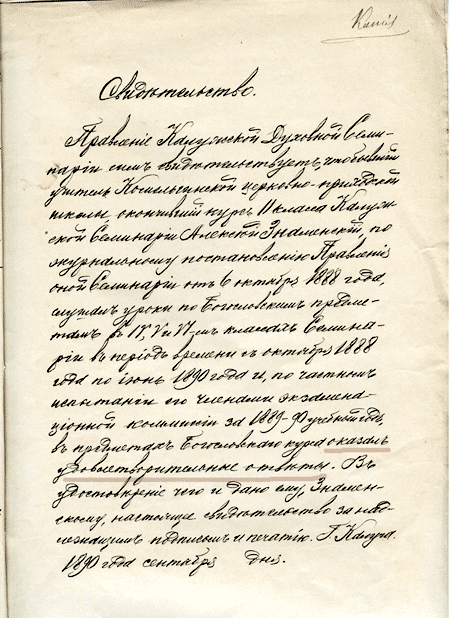 Копія
Свидѣтельство.
Правленіе Калужской Духовной Семи-
наріи симъ свидѣтельствуетъ, что бывшій
учитель церковно-приходской
школы, окончившій курсъ II класса Калуж-
ской Семинаріи Алексѣй Знаменскій, по
журнальному постановленію Правленія
оной Семинаріи отъ 6 октября 1888 года,
слушалъ уроки по Богословскимъ предме-
тамъ въ IV, V и VI-мъ классахъ Семина-
ріи въ періодъ времени съ октября 1888
года по іюнь 1890 года и, по частномъ
испытаніи его членами экзамена-
ціонной коммиссіи за 1889-90 учебный годъ,
въ предметахъ Богословскаго курса оказалъ
удовлетворительные отвѣты. Въ
удостовѣреніе чего и дано ему, Знамен-
скому, настоящее свидѣтельство за над-
лежащимъ подписомъ и печатію. Г. Калуга.
1890 года сентября дня.